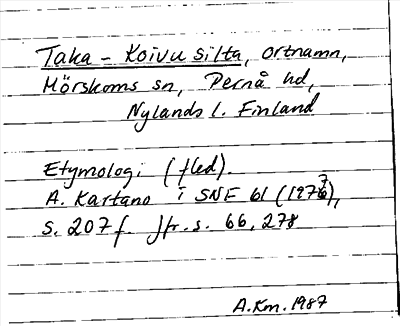 Taka - Koivusilta, ortnamn,
Mörskoms sn, Pernå hd,
Nylands l. Finland
Etymologi (fled).
A. Kartano i SNF 61 (1977),
s. 207 f. Jfr. s. 66, 278
A.Km. 1987